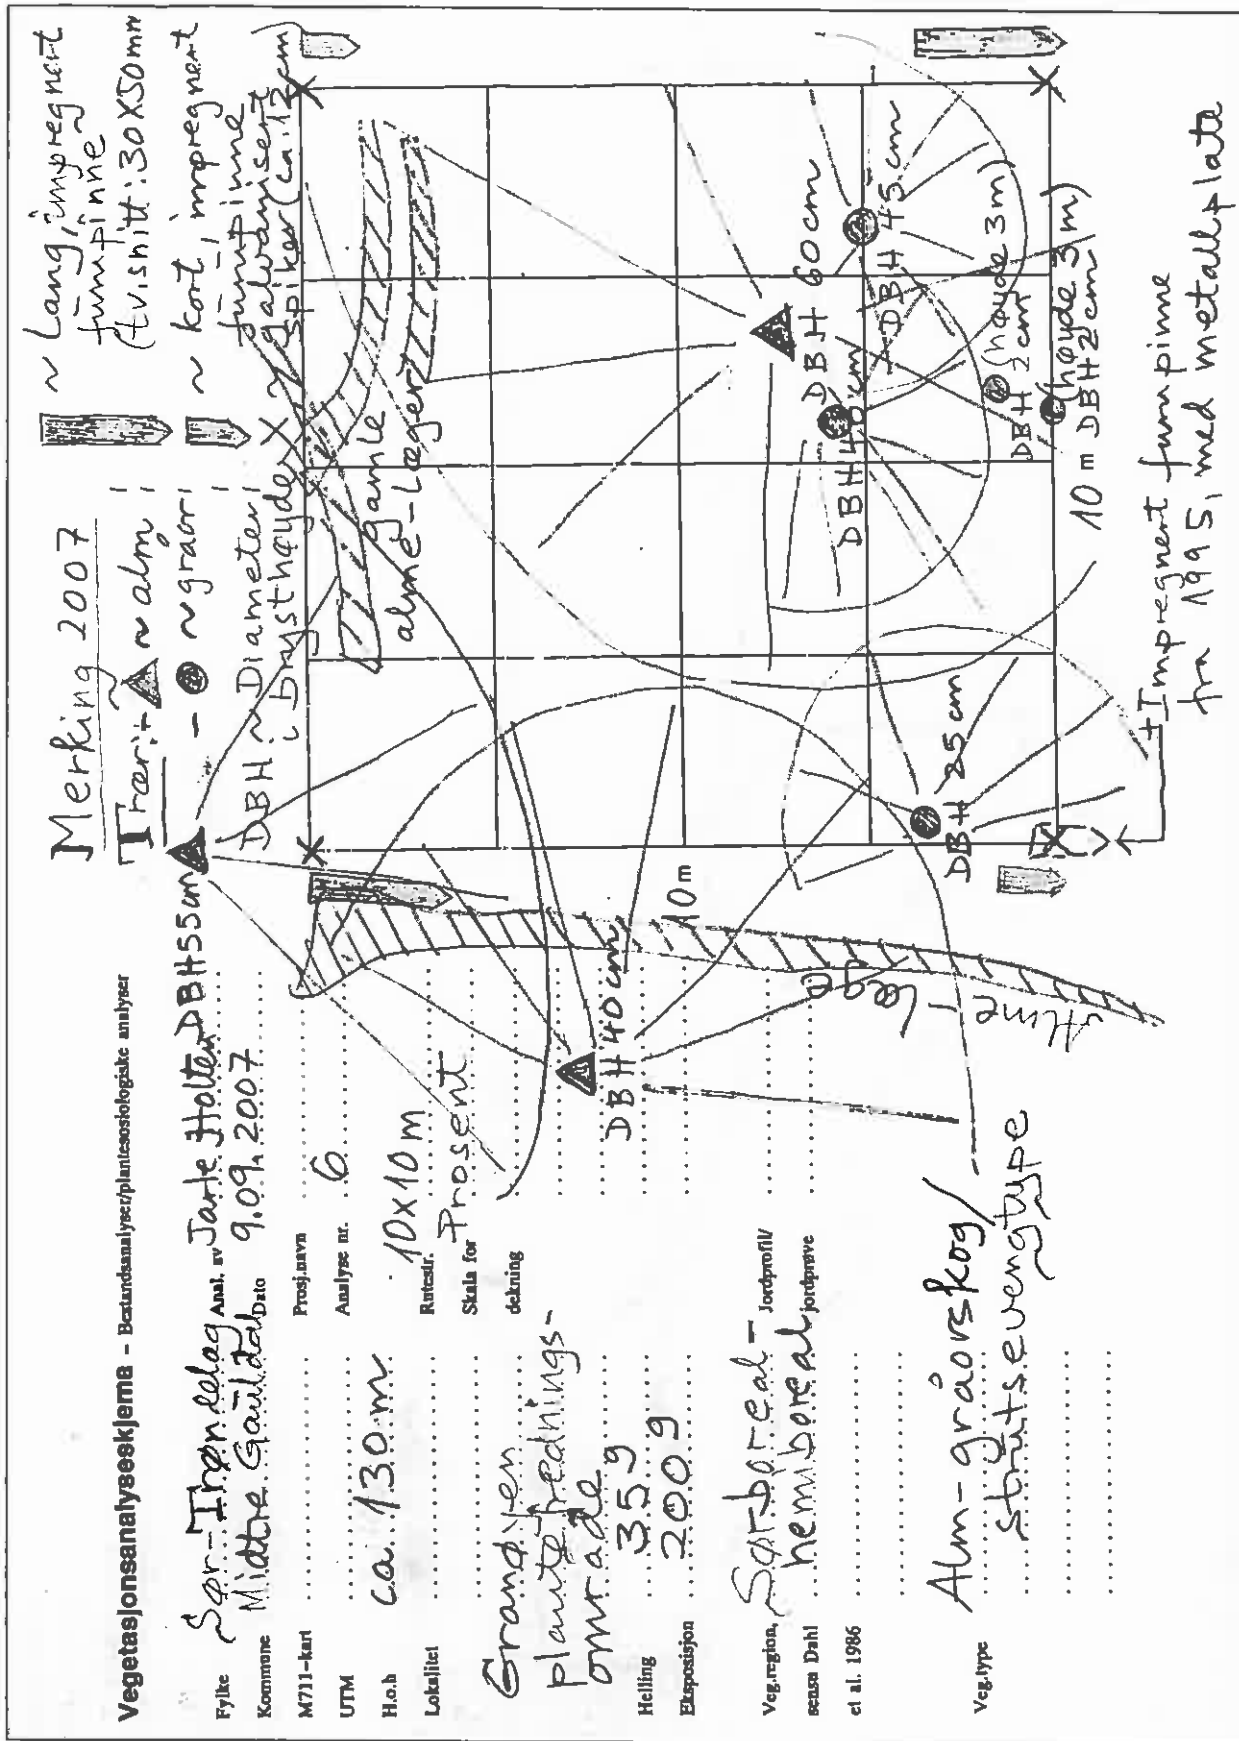 Vegetasjonsanalyseskjema - Bestandsanalyser/plantesosiologiske analyser
Fylke Sør-Trøndelag Anal. av Jarle Holten
Kommune Midtre Gauldal Dato 9.09.2007
M711-kart Prosj.navn
UTM Analyse nr. 6
H.o.h ca. 130 m Rutestr. 10x10 m
Lokalitet Skala for dekning Prosent
Grandøyen
plantefrednings-
område
Helling 35 g
Eksposisjon 200 g
Veg.region, Sørboreal- Jordprofil/
sensu Dahl hemiboreal jordprøve
et al. 1986
Veg.type Alm-gråorskog/
strutsevengtype
Merking 2007
Trær: ~ alm
- ~ gråor
DBH ~ Diameter
i brysthøyde
~ Lang, impregnert
furupinne
(tv.snitt: 30X50mm
~ kort, impregnert
furupinne
X ~ galvanisert
spiker (ca. 12 cm)
DBH 55 cm
gamle
alme-læger
DBH 40 cm
10 m
Alme-
læge
DBH 60 cm
DBH 45 cm
DBH 25 cm
DBH 2 cm (høyde 3 m)
DBH 2 cm (høyde 3 m)
10 m
+ Impregnert furupinne
fra 1995, med metallplate